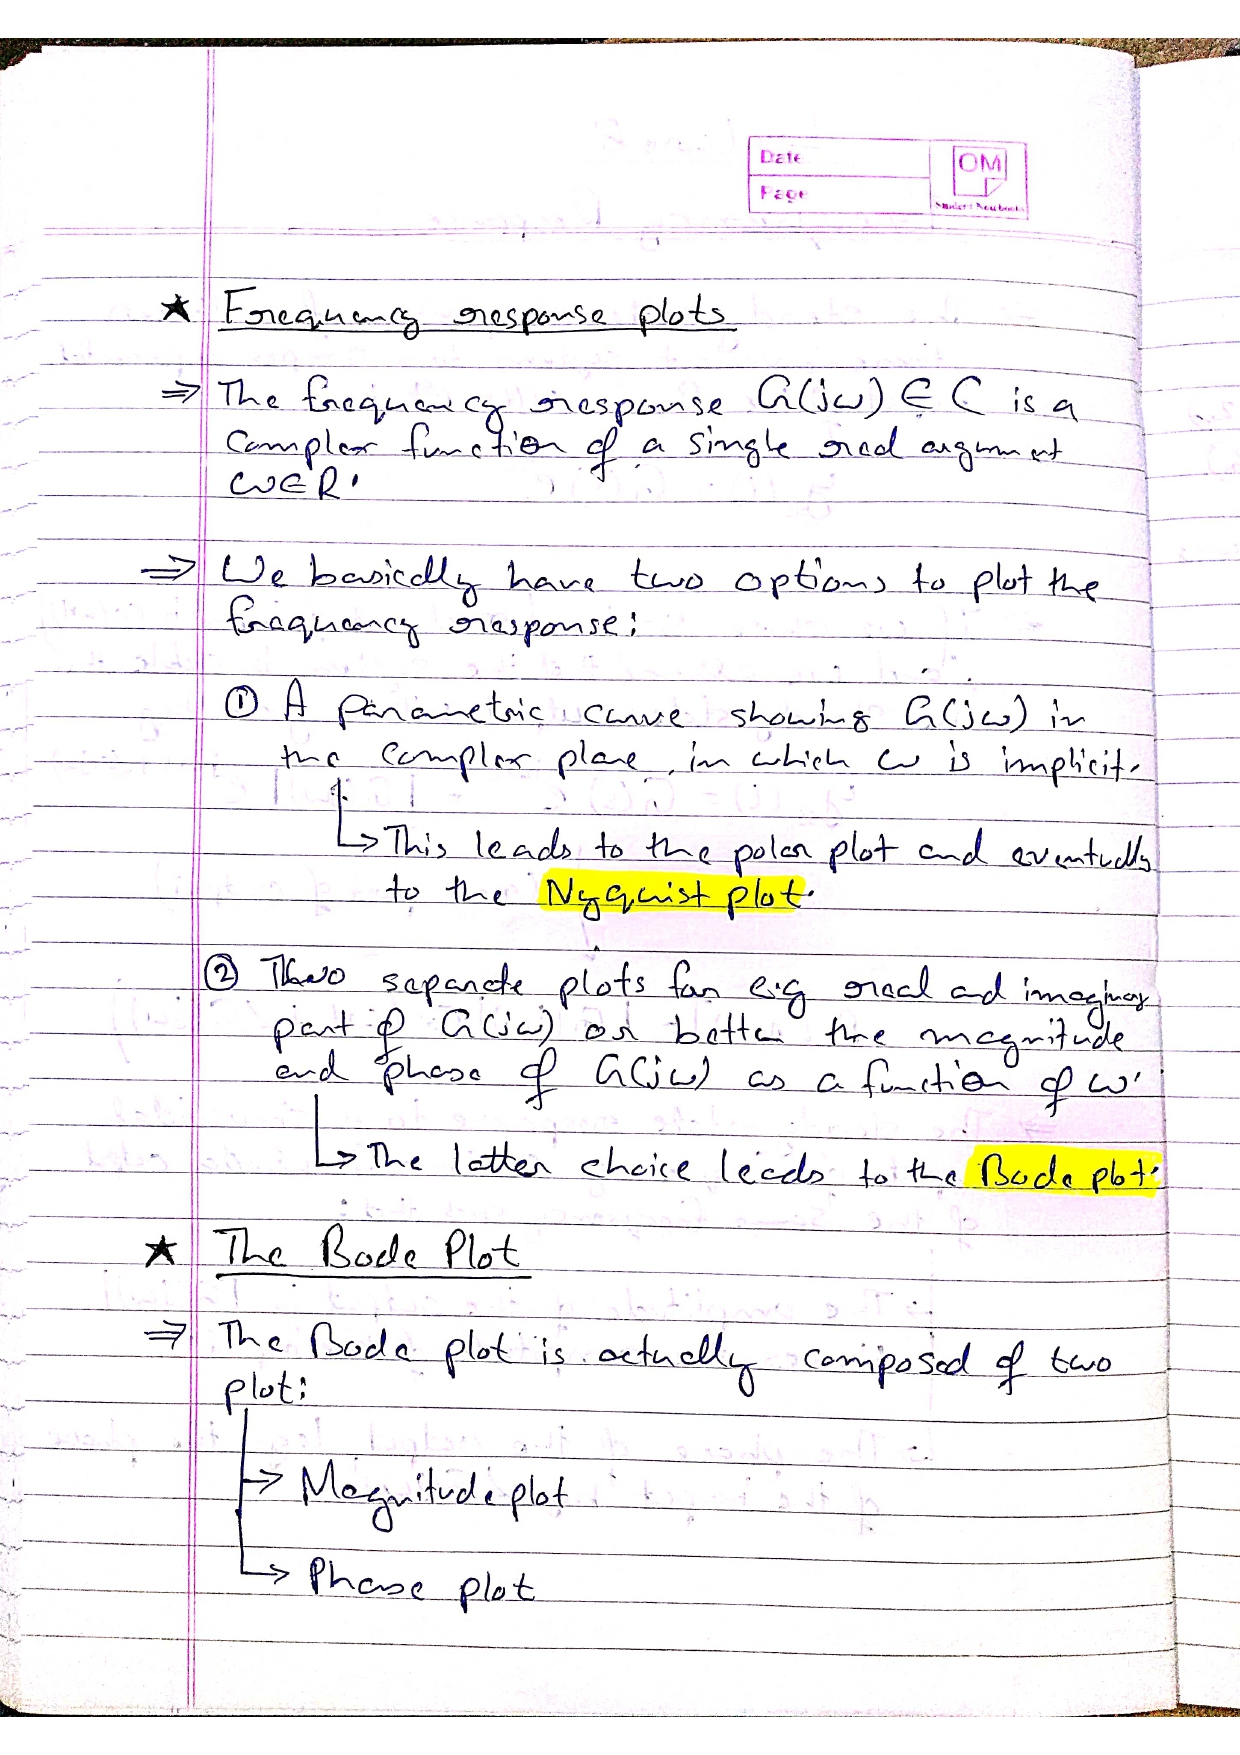 Date
OM
Page
Student Notebooks
★ Frequency response plots
⇒ The frequency response G(jω) ∈ C is a
complex function of a single real argument
ω∈R.
⇒ We basically have two options to plot the
frequency response:
① A parametric curve showing G(jω) in
the complex plane, in which ω is implicit.
↳ This leads to the polar plot and eventually
to the Nyquist plot.
② Two separate plots for e.g real and imaginary
part of G(jω) or better the magnitude
and phase of G(jω) as a function of ω.
↳ The latter choice leads to the Bode plot.
★ The Bode Plot
⇒ The Bode plot is actually composed of two
plot:
→ Magnitude plot
↳ Phase plot